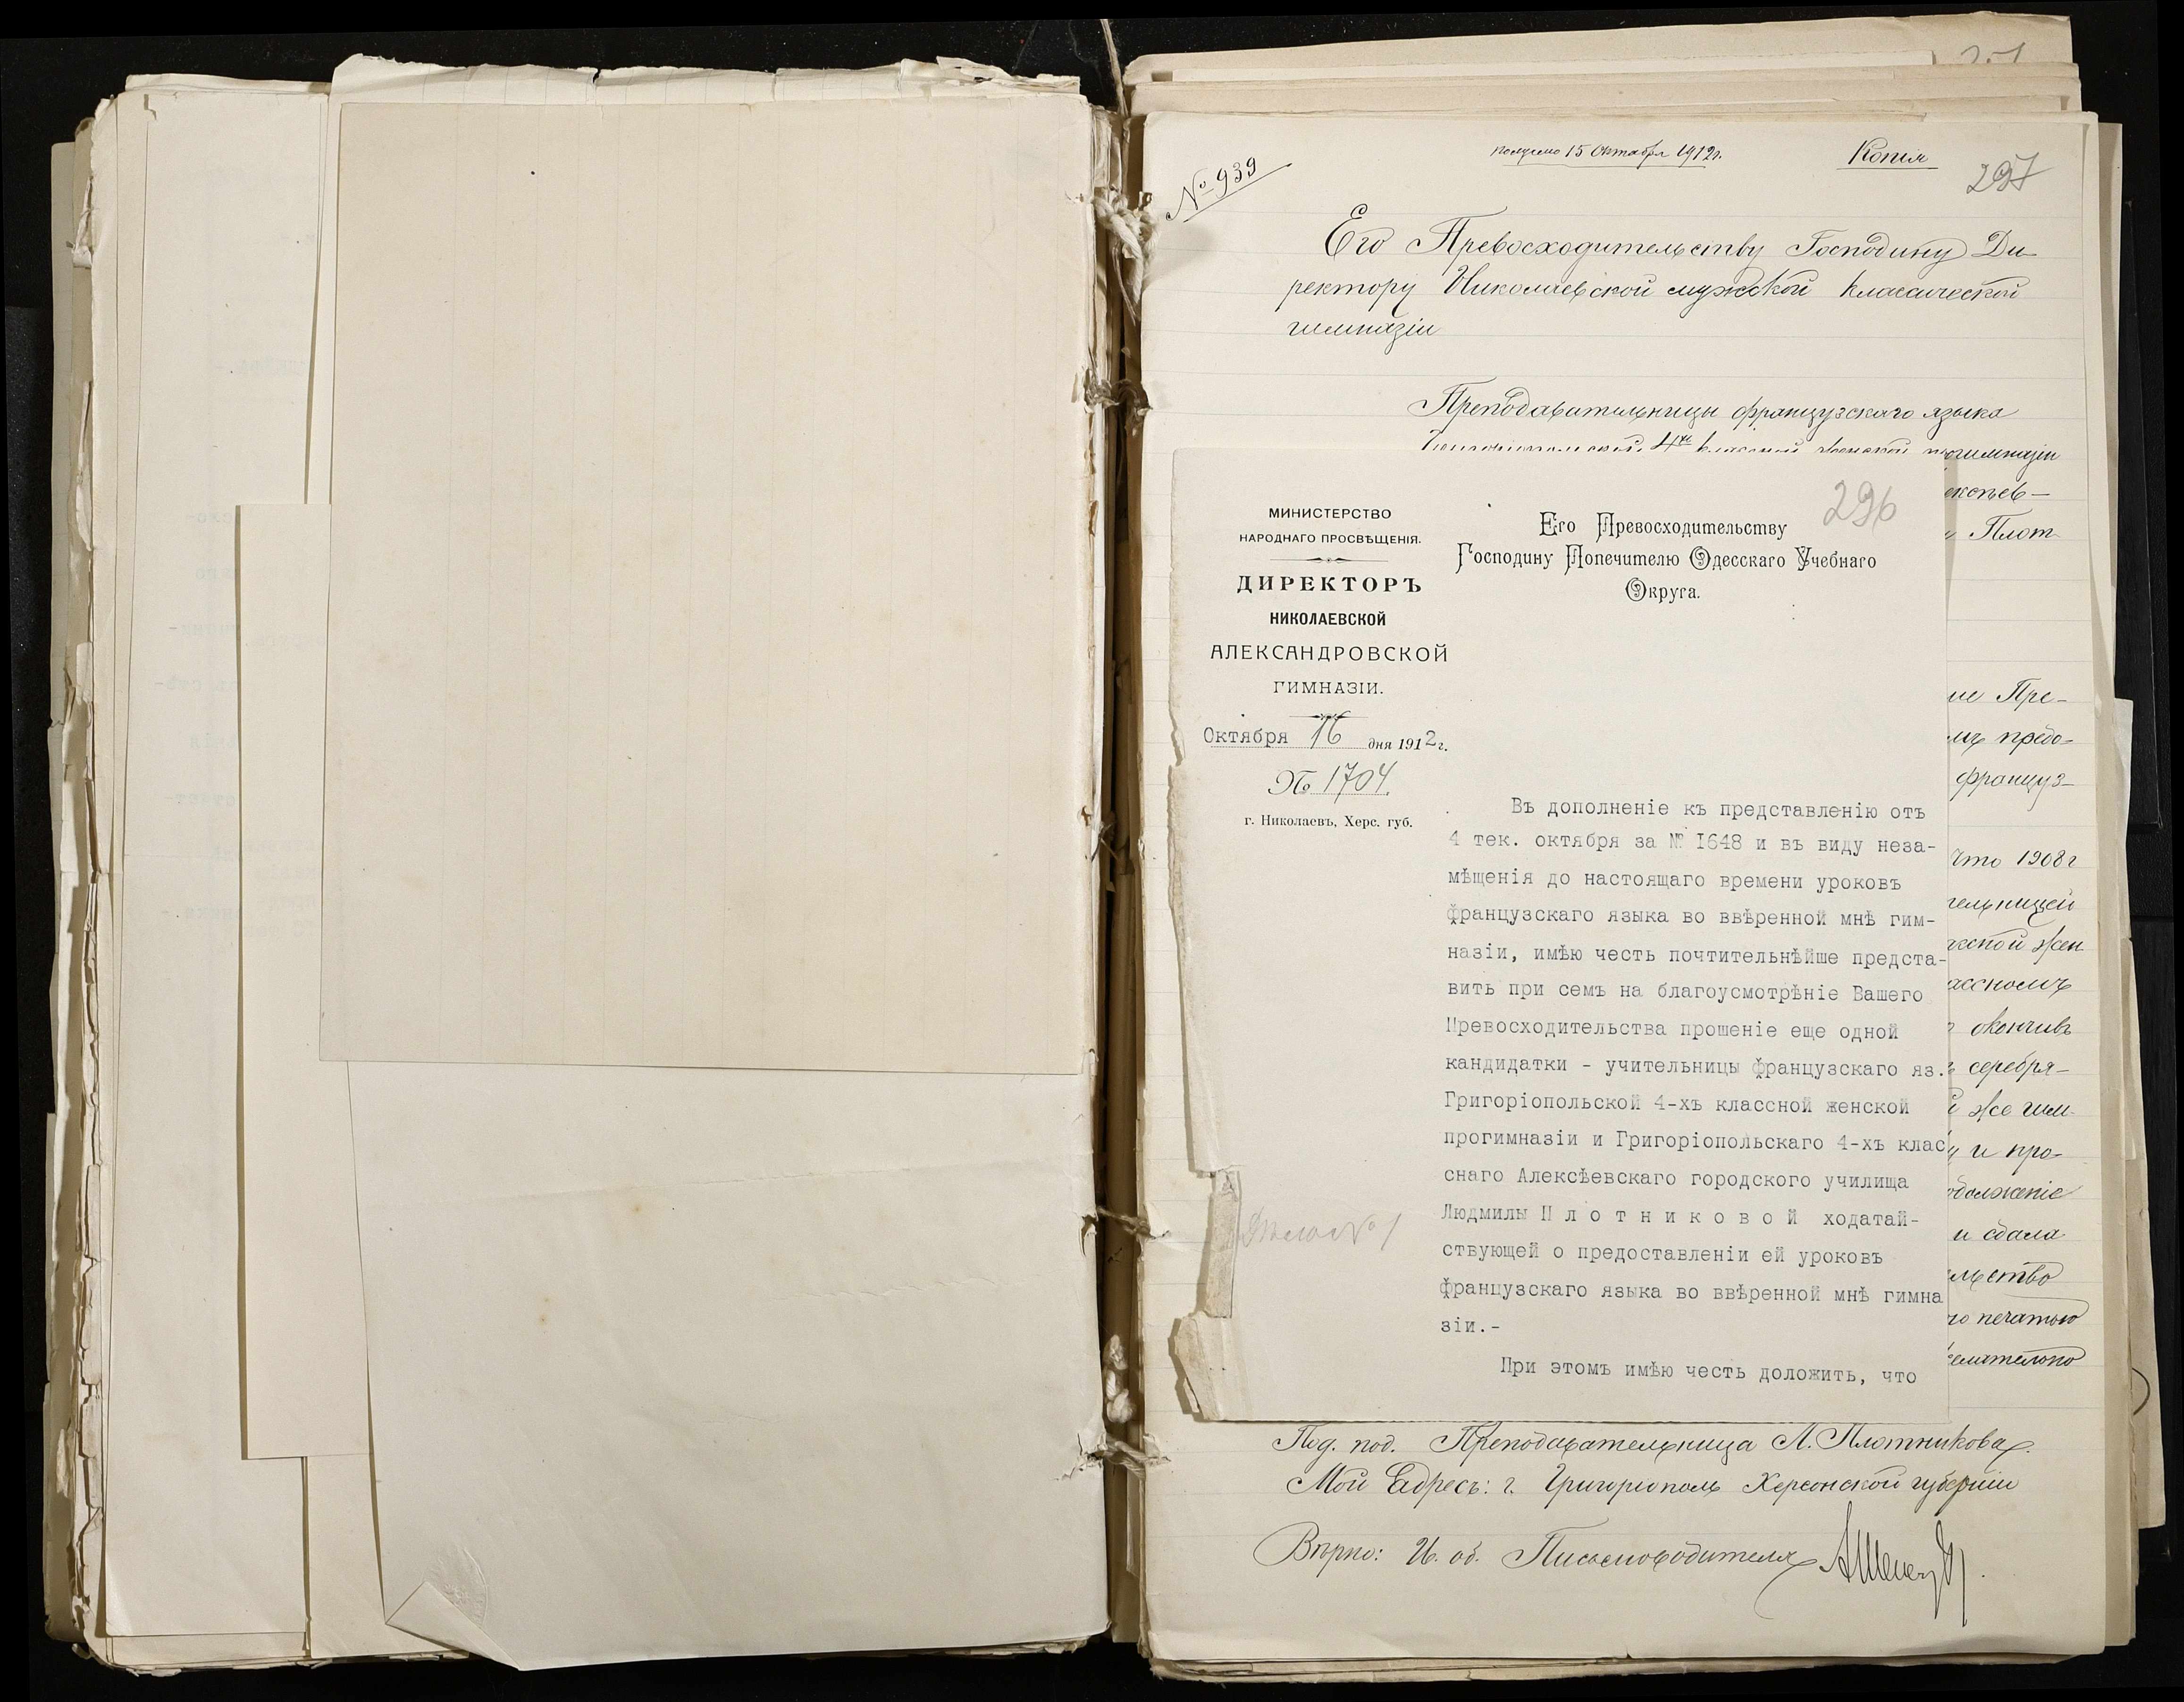 № 939
получено 15 Октября 1912 г.
Копія
297
Его Превосходительству Господину Ди-
ректору Николаевской мужской классической
гимназіи
Преподавательницы французскаго языка
4хъ классной женской прогимназіи
Плот
296
МИНИСТЕРСТВО
НАРОДНАГО ПРОСВѢЩЕНІЯ.
ДИРЕКТОРЪ
НИКОЛАЕВСКОЙ
АЛЕКСАНДРОВСКОЙ
ГИМНАЗІИ.
Октября 16 дня 1912 г.
№ 1704.
г. Николаевъ, Херс. губ.
Его Превосходительству
Господину Попечителю Одесскаго Учебнаго
Округа.
Въ дополненіе къ представленію отъ
4 тек. октября за № I648 и въ виду неза-
мѣщенія до настоящаго времени уроковъ
французскаго языка во ввѣренной мнѣ гим-
назіи, имѣю честь почтительнѣйше предста-
вить при семъ на благоусмотрѣніе Вашего
Превосходительства прошеніе еще одной
кандидатки - учительницы французскаго яз.
Григоріопольской 4-хъ классной женской
прогимназіи и Григоріопольскаго 4-хъ клас
снаго Алексѣевскаго городского училища
Людмилы П л о т н и к о в о й ходатай-
ствующей о предоставленіи ей уроковъ
французскаго языка во ввѣренной мнѣ гимна
зіи.-
При этомъ имѣю честь доложить, что
ие Пре-
мъ предо-
француз-
что 1908 г
тельницей
ской жен
ассномъ
окончивъ
серебря-
же гим-
и про-
должение
и сдала
льство
печатью
Под. под. Преподавательница Л. Плотникова.
Мой Адресъ: г. Григоріополь Херсонской губерніи
Вѣрно: И. об. Письмоводителя